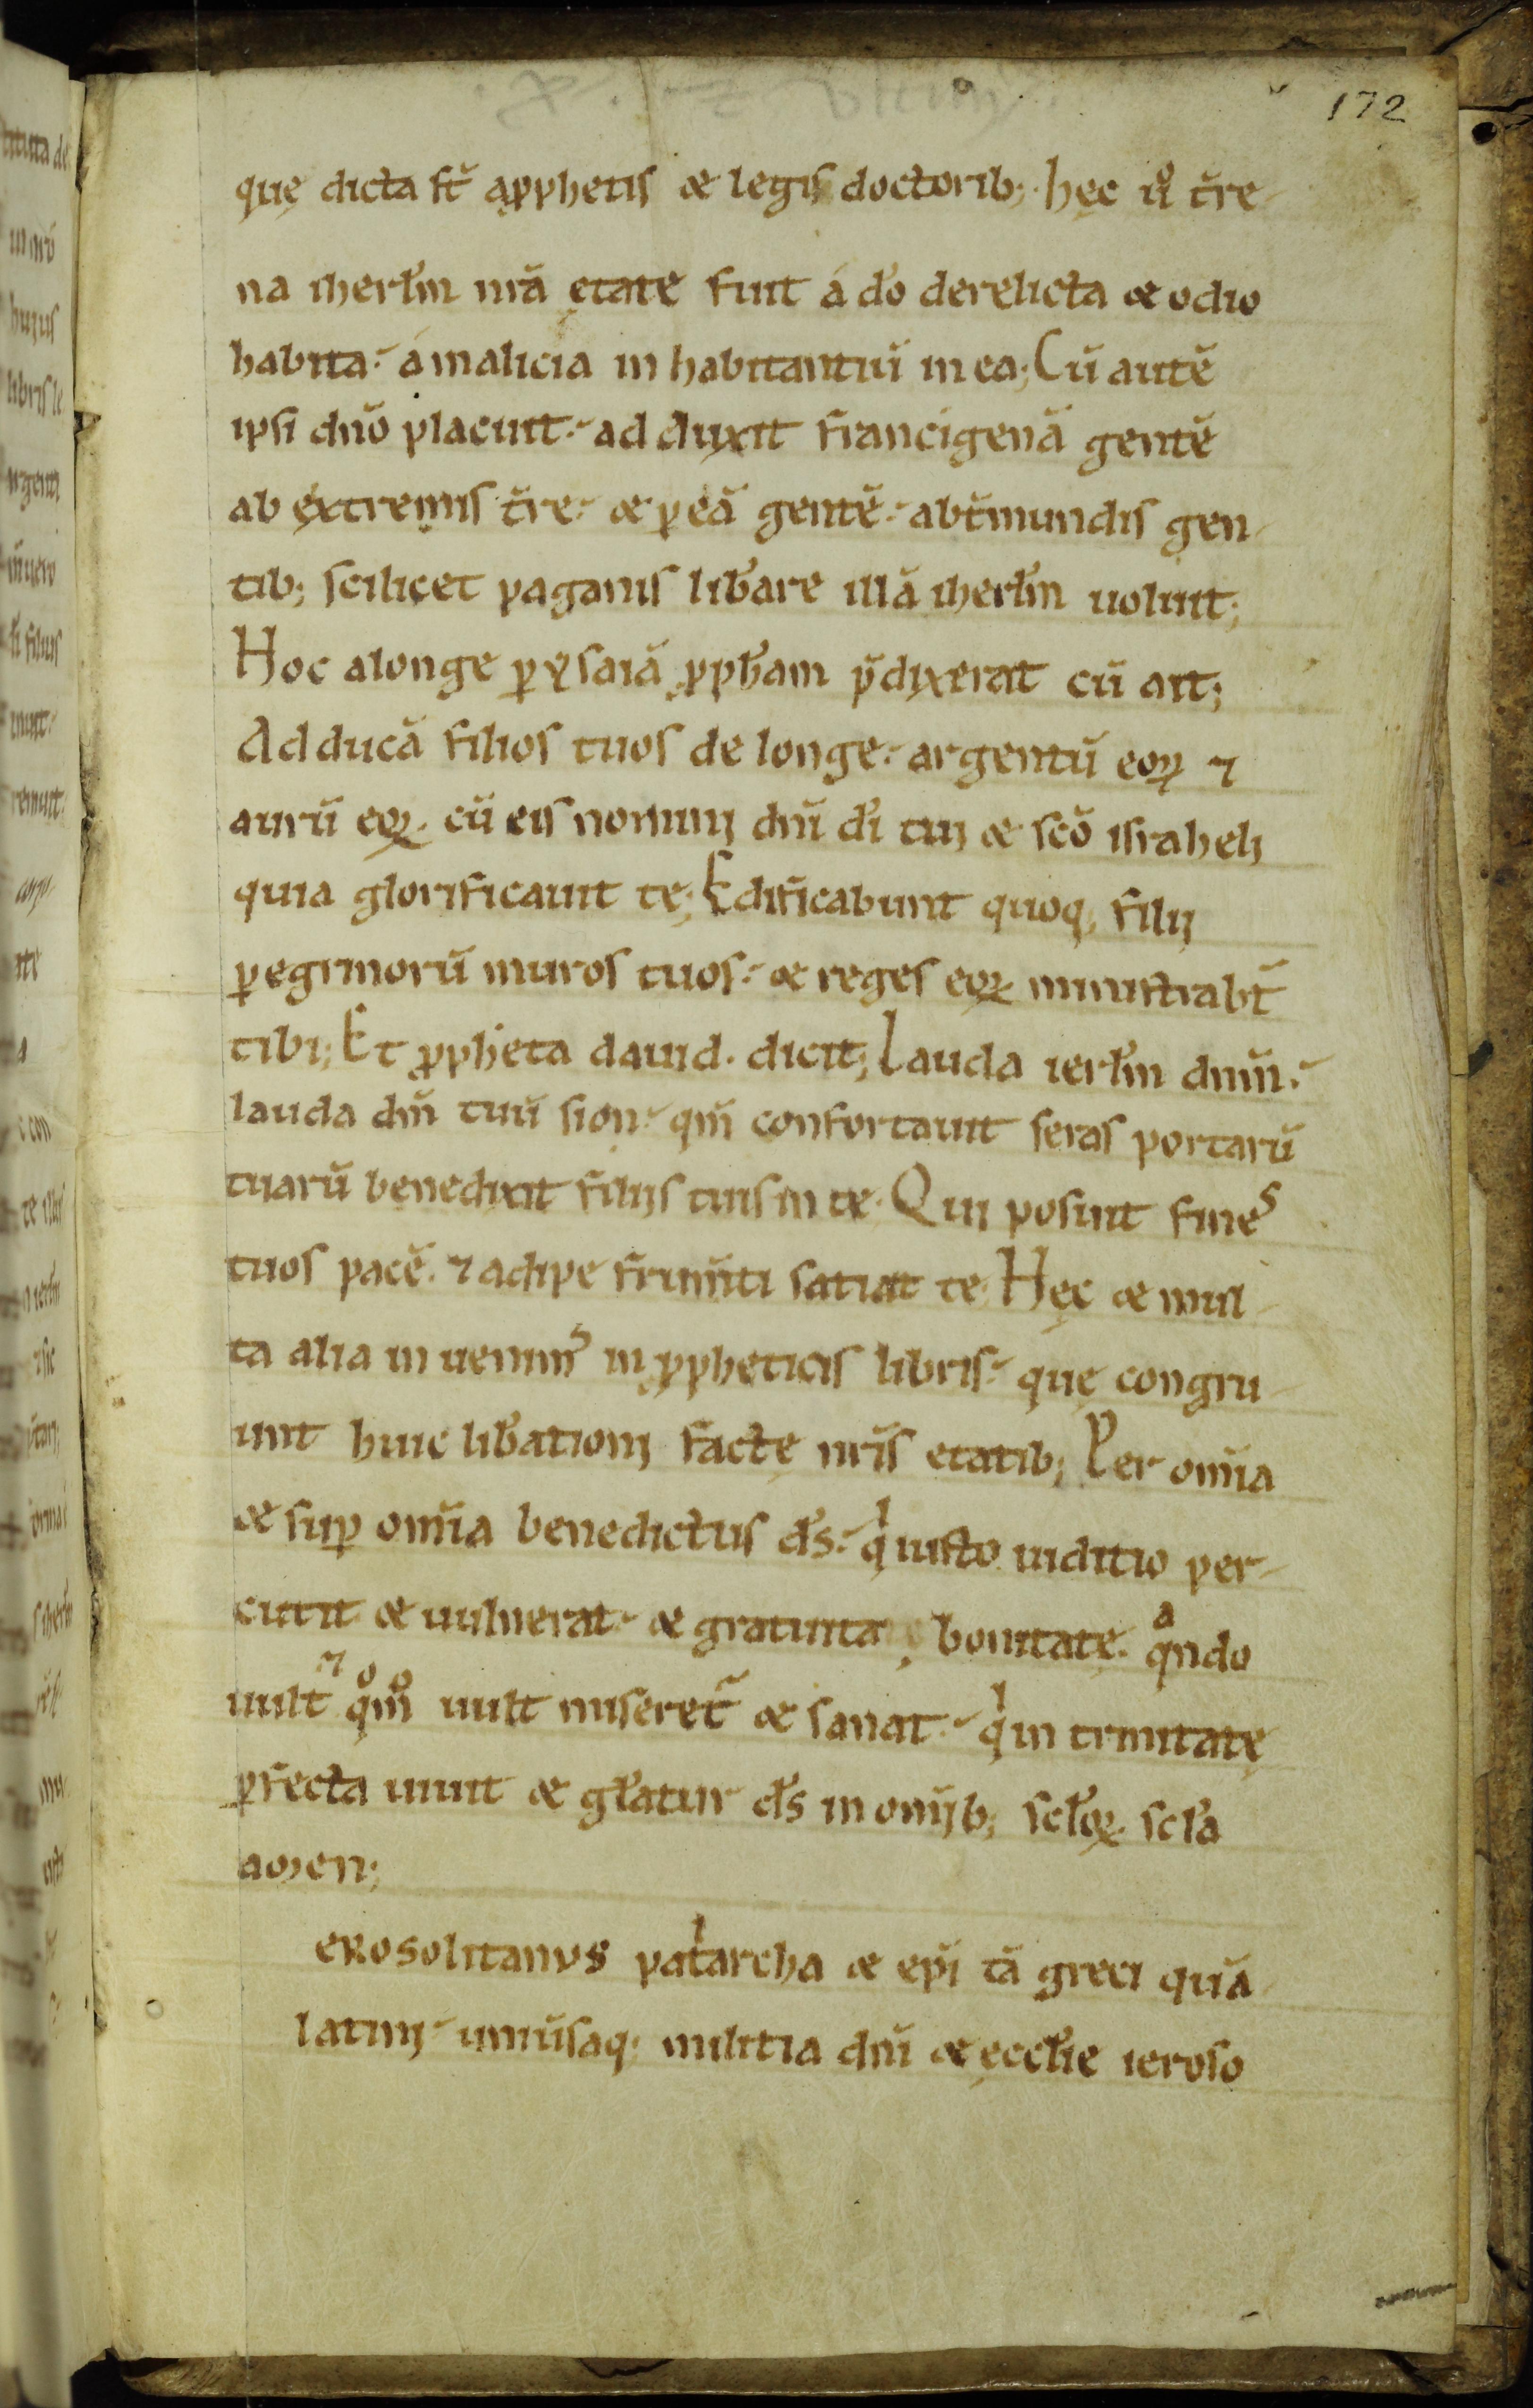 172
quę dicta st̄ aꝓphetis & legis doctorib; hęc ů t̄re
na iherłm nr̄ā ętate fuit á dō derelicta & odio
habita. á malicia inhabitantiū in ea; Cū autē
ipsi dn̄o placuit. adduxit francigenā gentē
ab extremis t̄re. & ꝑ eā gentē. ab īmundis gen
tib; scilicet paganis lib̄are illā iherłm uoluit;
Hoc alonge ꝑ ysaiā ꝓph̄am p̄dixerat cū ait;
Adducā filios tuos de longe. argentū eoꝝ ⁊
aurū eoꝝ. cū eis nomini dn̄i dī tui & sc̄o israheli
quia glorificauit te; Edificabunt quoq; filii
ꝑegrinorū muros tuos. & reges eoꝝ ministrabt̄
tibi; Et ꝓpheta dauid. dicit; Lauda ierłm dn̄m.
lauda dm̄ tuū sion. qm̄ confortauit seras portarū
tuarū benedixit filiis tuis in te. Qui posuit fines
tuos pacē. ⁊ adipe frum̄ti satiat te. Hęc & mul
ta alia inuenim᷒ in ꝓpheticis libris. quę congru
unt huic lib̄ationi factę nr̄is etatib; Per om̄ia
& suꝑ om̄ia benedictus ds̄. qⁱ iusto iuditio per
cutit & uulnerat. & gratuita bonitatę. qᵃndo
uult ⁊ qᵒmᵒ uult miseret̄ & sanat. qⁱ in trinitatę
ꝑfecta uiuit & gl̄atur ds̄ in om̄ib; scl̄oꝝ scl̄a
amen;
erosolitanus patⁱarcha & ep̄i tā greci quā
latini. uniūsaq; militia dn̄i & ęccl̄ie ieroso